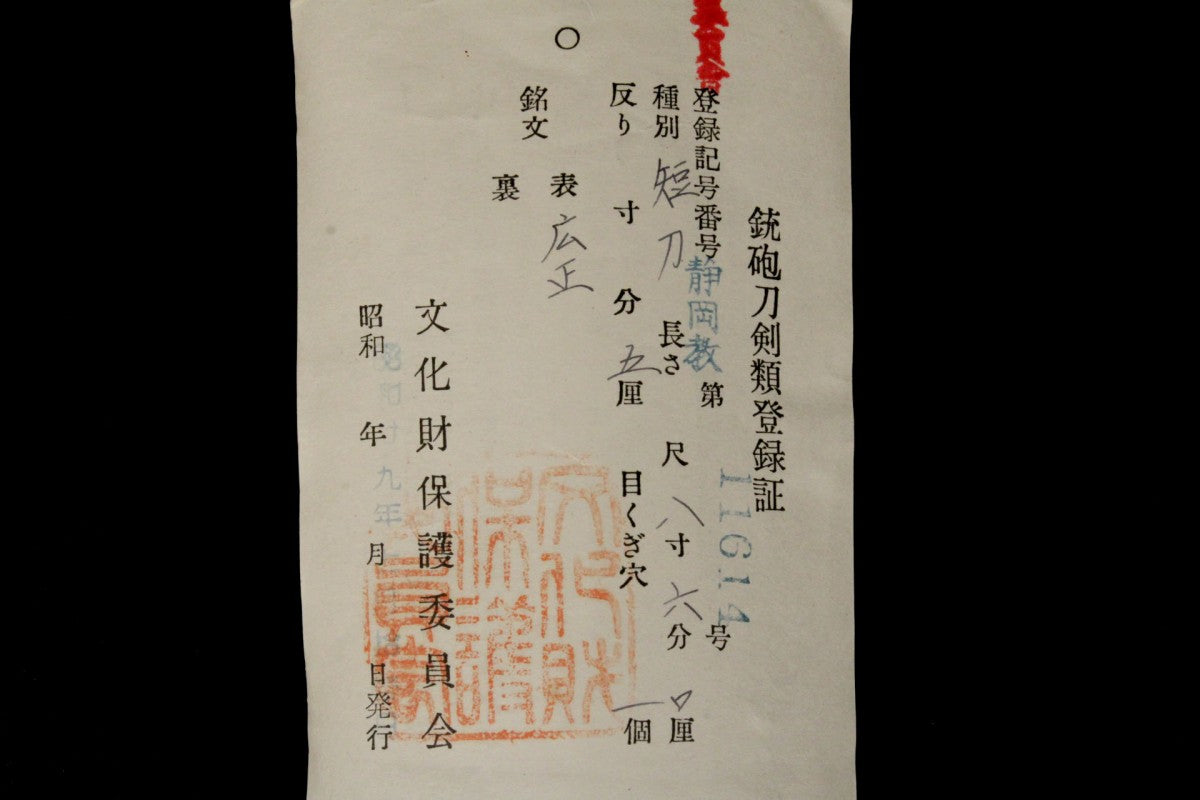 銃砲刀剣類登録証
登録記号番号 静岡教 第 11614 号
種別 短刀 長さ 尺 八寸 六分 口厘
反り 寸 分 五厘 目くぎ穴 一個
銘文 表 広正
裏
文化財保護委員会
昭和 年 月 日発行
文化財
保護